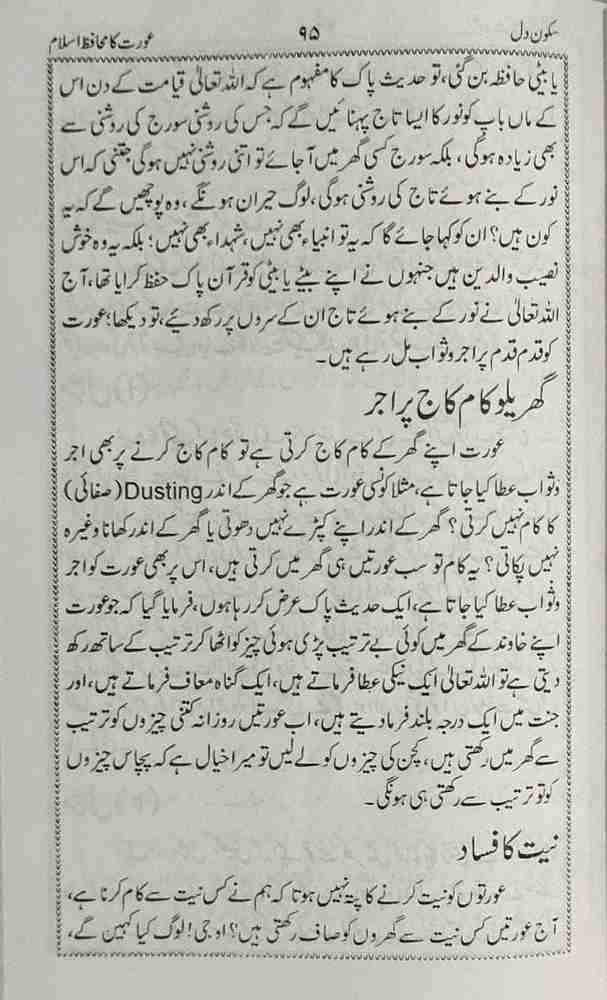 سکون دل ۹۵ عورت کا محافظ اسلام
یا بیٹی حافظہ بن گئی، تو حدیث پاک کا مفہوم ہے کہ اللہ تعالیٰ قیامت کے دن اس
کے ماں باپ کو نور کا ایسا تاج پہنائیں گے کہ جس کی روشنی سورج کی روشنی سے
بھی زیادہ ہوگی، بلکہ سورج کسی گھر میں آ جائے تو اتنی روشنی نہیں ہوگی جتنی کہ اس
نور کے بنے ہوئے تاج کی روشنی ہوگی، لوگ حیران ہونگے، وہ پوچھیں گے کہ یہ
کون ہیں؟ ان کو کہا جائے گا کہ یہ تو انبیاء بھی نہیں، شہداء بھی نہیں؛ بلکہ یہ وہ خوش
نصیب والدین ہیں جنہوں نے اپنے بیٹے یا بیٹی کو قرآن پاک حفظ کرایا تھا، آج
اللہ تعالیٰ نے نور کے بنے ہوئے تاج ان کے سروں پر رکھ دیئے، تو دیکھا؛ عورت
کو قدم قدم پر اجر و ثواب مل رہے ہیں۔
گھریلو کام کاج پر اجر
عورت اپنے گھر کے کام کاج کرتی ہے تو کام کاج کرنے پر بھی اجر
وثواب عطا کیا جاتا ہے، مثلا کونسی عورت ہے جو گھر کے اندر Dusting (صفائی)
کا کام نہیں کرتی؟ گھر کے اندر اپنے کپڑے نہیں دھوتی یا گھر کے اندر کھانا وغیرہ
نہیں پکاتی؟ یہ کام تو سب عورتیں ہی گھر میں کرتی ہیں، اس پر بھی عورت کو اجر
وثواب عطا کیا جاتا ہے، ایک حدیث پاک عرض کر رہا ہوں، فرمایا گیا کہ جو عورت
اپنے خاوند کے گھر میں کوئی بے ترتیب پڑی ہوئی چیز کو اٹھا کر ترتیب کے ساتھ رکھ
دیتی ہے تو اللہ تعالیٰ ایک نیکی عطا فرماتے ہیں، ایک گناہ معاف فرماتے ہیں، اور
جنت میں ایک درجہ بلند فرما دیتے ہیں، اب عورتیں روزانہ کتنی چیزوں کو ترتیب
سے گھر میں رکھتی ہیں، کچن کی چیزوں کو لے لیں تو میرا خیال ہے کہ پچاس چیزوں
کو تو ترتیب سے رکھتی ہی ہونگی۔
نیت کا فساد
عورتوں کو نیت کرنے کا پتہ نہیں ہوتا کہ ہم نے کس نیت سے کام کرنا ہے،
آج عورتیں کس نیت سے گھروں کو صاف رکھتی ہیں؟ او جی! لوگ کیا کہیں گے،